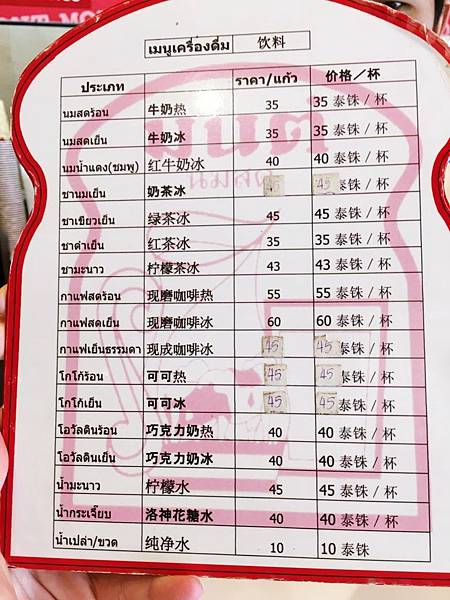 เมนูเครื่องดื่ม 饮料
ประเภท ราคา/แก้ว 价格／杯
นมสดร้อน 牛奶热 35 35 泰铢 / 杯
นมสดเย็น 牛奶冰 35 35 泰铢 / 杯
นมน้ำแดง(ชมพู) 红牛奶冰 40 40 泰铢 / 杯
ชานมเย็น 奶茶冰 45 45 泰铢 / 杯
ชาเขียวเย็น 绿茶冰 45 45 泰铢 / 杯
ชาดำเย็น 红茶冰 35 35 泰铢 / 杯
ชามะนาว 柠檬茶冰 43 43 泰铢 / 杯
กาแฟสดร้อน 现磨咖啡热 55 55 泰铢 / 杯
กาแฟสดเย็น 现磨咖啡冰 60 60 泰铢 / 杯
กาแฟเย็นธรรมดา 现成咖啡冰 45 45 泰铢 / 杯
โกโก้ร้อน 可可热 45 45 泰铢 / 杯
โกโก้เย็น 可可冰 45 45 泰铢 / 杯
โอวัลตินร้อน 巧克力奶热 40 40 泰铢 / 杯
โอวัลตินเย็น 巧克力奶冰 40 40 泰铢 / 杯
น้ำมะนาว 柠檬水 45 45 泰铢 / 杯
น้ำกระเจี๊ยบ 洛神花糖水 40 40 泰铢 / 杯
น้ำเปล่า/ขวด 纯净水 10 10 泰铢
มนต์
นมสด